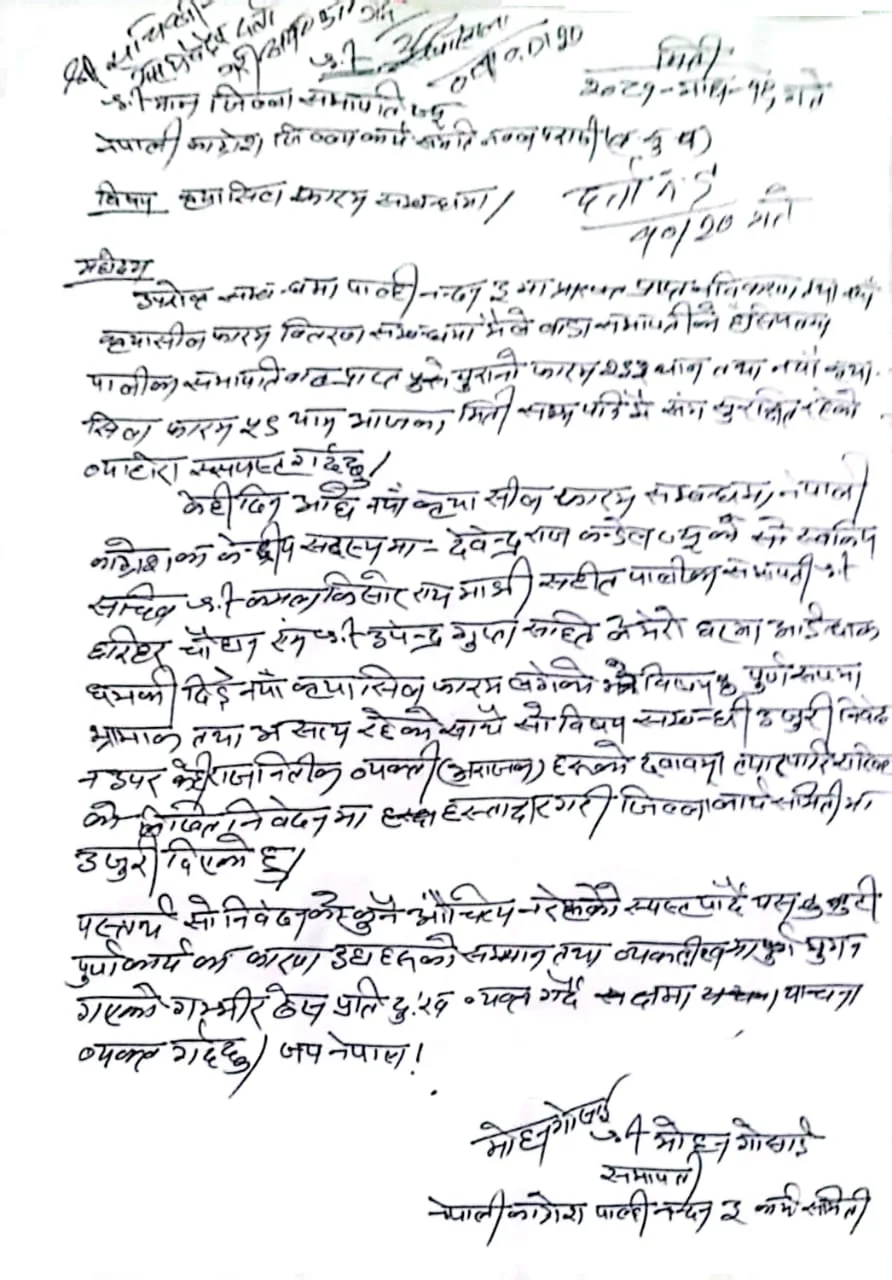 मिती
२०८१-माघ-१९, गते
श्रीमान जिल्ला सभापति ज्यू
नेपाली काग्रेश जिल्ला कार्य समिति नवल परासी (ब सु प)
विषय क्रयासिल फारम सम्बन्धमा।
दर्ता नं ८
१०/२० गते
महोदय
उपरोक्त सम्बन्धमा पाल्ही नन्दन ३ मा
क्रयासील फारम वितरण सम्बन्धमा मैले वडा सभापतीको हैसियतमा
पालीका सभापति बाट प्राप्त पुरानो फारम २३३ थान तथा नयाँ क्रया
सिल फारम ५८ थान आजका मिती सम्म म संग सुरक्षित रहेको
व्याहोरा स्पस्ट गर्दछु।
केही दिन अघि नयाँ क्रया सील फारम सम्बन्धमा नेपाली
काग्रेशका केन्द्रीय सदस्य मा- देवेन्द्र राज कन्डेल ज्यूको सो स्वकिय
सचिव श्री कमल किसोर राय माझी सहीत पालीका सभापती श्री
हरिहर चौधरी संग श्री उपेन्द्र गुप्ता सहित ले मेरो घरमा आई धाक
धमकी दिई नयाँ क्रयासिल फारम लगेको भन्ने विषय पुर्ण रुपमा
भ्रामाक तथा असत्य रहेको साथै सो विषय सम्बन्धी उजुरी निवेद
न उपर केही राजनितीक व्यक्ती (अराजक) हरुको दवावमा तयार पारि राखिए
को लिखित निवेदनमा हस्तादार गरी जिल्ला कार्य समितीमा
उजुरी दिएको हु।
यस्तार्थ सो निवेदनको कुनै औचित्य नरहेको स्पस्ट पार्दै यस त्रुटी
पुर्ण कार्य का कारण उहाहरुको सम्मान तथा व्यक्तीत्वमा पुग्न
गएको गम्भीर ठेस प्रति दु:ख व्यक्त गर्दै क्षमा याचना
व्यक्त गर्दछु। जय नेपाल!
मोहन गोसाई श्री मोहन गोसाई
सभापती
नेपाली काग्रेश पाल्ही नन्दन ३ कार्य समिती